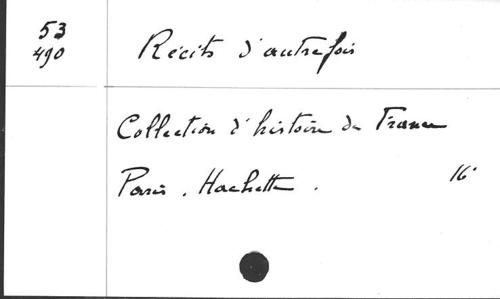 53
490
Récits d'autrefois
Collection d'histoire de France
Paris. Hachette. 16°